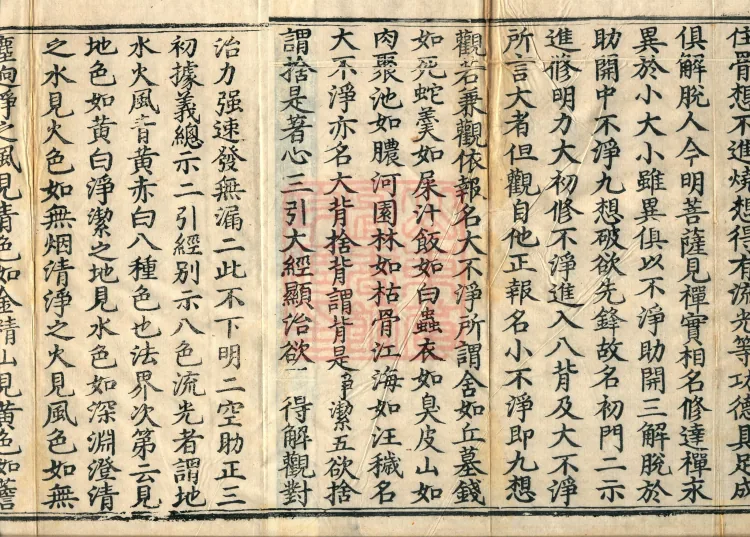 住骨想不進燒想得有流光等功德具足成
俱解脫人今明菩薩見禪實相名修達禪求
異於小大小雖異俱以不淨助開三解脫於
助開中不淨九想破欲先鋒故名初門二示
進修明力大初修不淨進入八背及大不淨
所言大者但觀自他正報名小不淨即九想
觀若兼觀依報名大不淨所謂舍如丘墓錢
如死蛇羹如屎汁飯如白蟲衣如臭皮山如
肉聚池如膿河園林如枯骨江海如汪穢名
大不淨亦名大背捨背謂背是淨潔五欲捨
謂捨是著心三引大經顯治欲 得解觀對
治力强速發無漏二此不下明二空助正三
初據義總示二引經別示八色流光者謂地
水火風青黃赤白八種色也法界次第云見
地色如黃白淨潔之地見水色如深淵澄清
之水見火色如無烟清淨之火見風色如無
塵逈淨之風見青色如金精山見黃色如薝